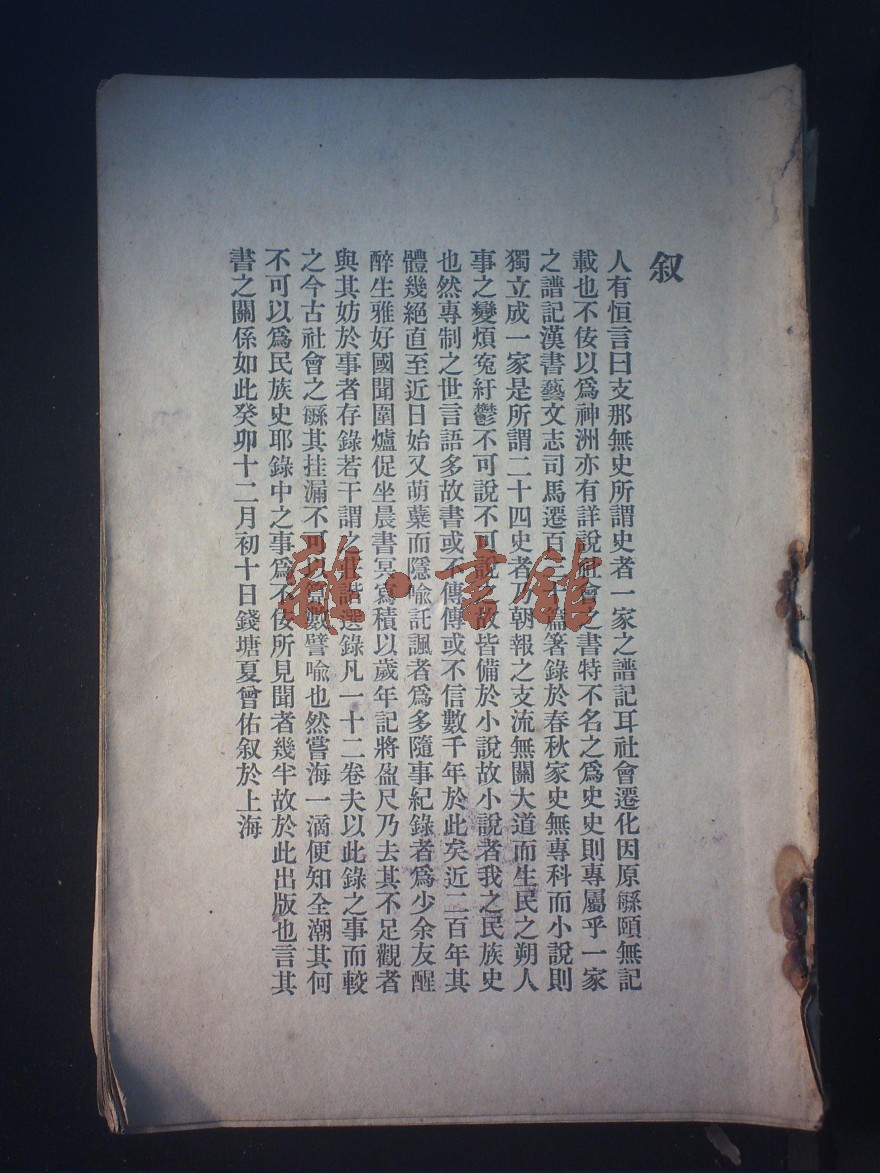 叙
人有恒言曰支那無史所謂史者一家之譜記耳社會遷化因原緐賾無記
載也不佞以爲神洲亦有詳說社會之書特不名之爲史史則專屬乎一家
之譜記漢書藝文志司馬遷百三十篇箸錄於春秋家史無專科而小說則
獨立成一家是所謂二十四史者乃朝報之支流無關大道而生民之朔人
事之變煩冤紆鬱不可說不可說之故皆備於小說故小說者我之民族史
也然專制之世言語多故書或不傳傳或不信數千年於此矣近二百年其
體幾絕直至近日始又萌蘗而隱喻託諷者爲多隨事紀錄者爲少余友醒
醉生雅好國聞圍爐促坐晨書冥寫積以歲年記將盈尺乃去其不足觀者
與其妨於事者存錄若干謂之莊諧選錄凡一十二卷夫以此錄之事而較
之今古社會之緐其挂漏不可以算數譬喻也然嘗海一滴便知全潮其何
不可以爲民族史耶錄中之事爲不佞所見聞者幾半故於此出版也言其
書之關係如此癸卯十二月初十日錢塘夏曾佑叙於上海
雜·書館